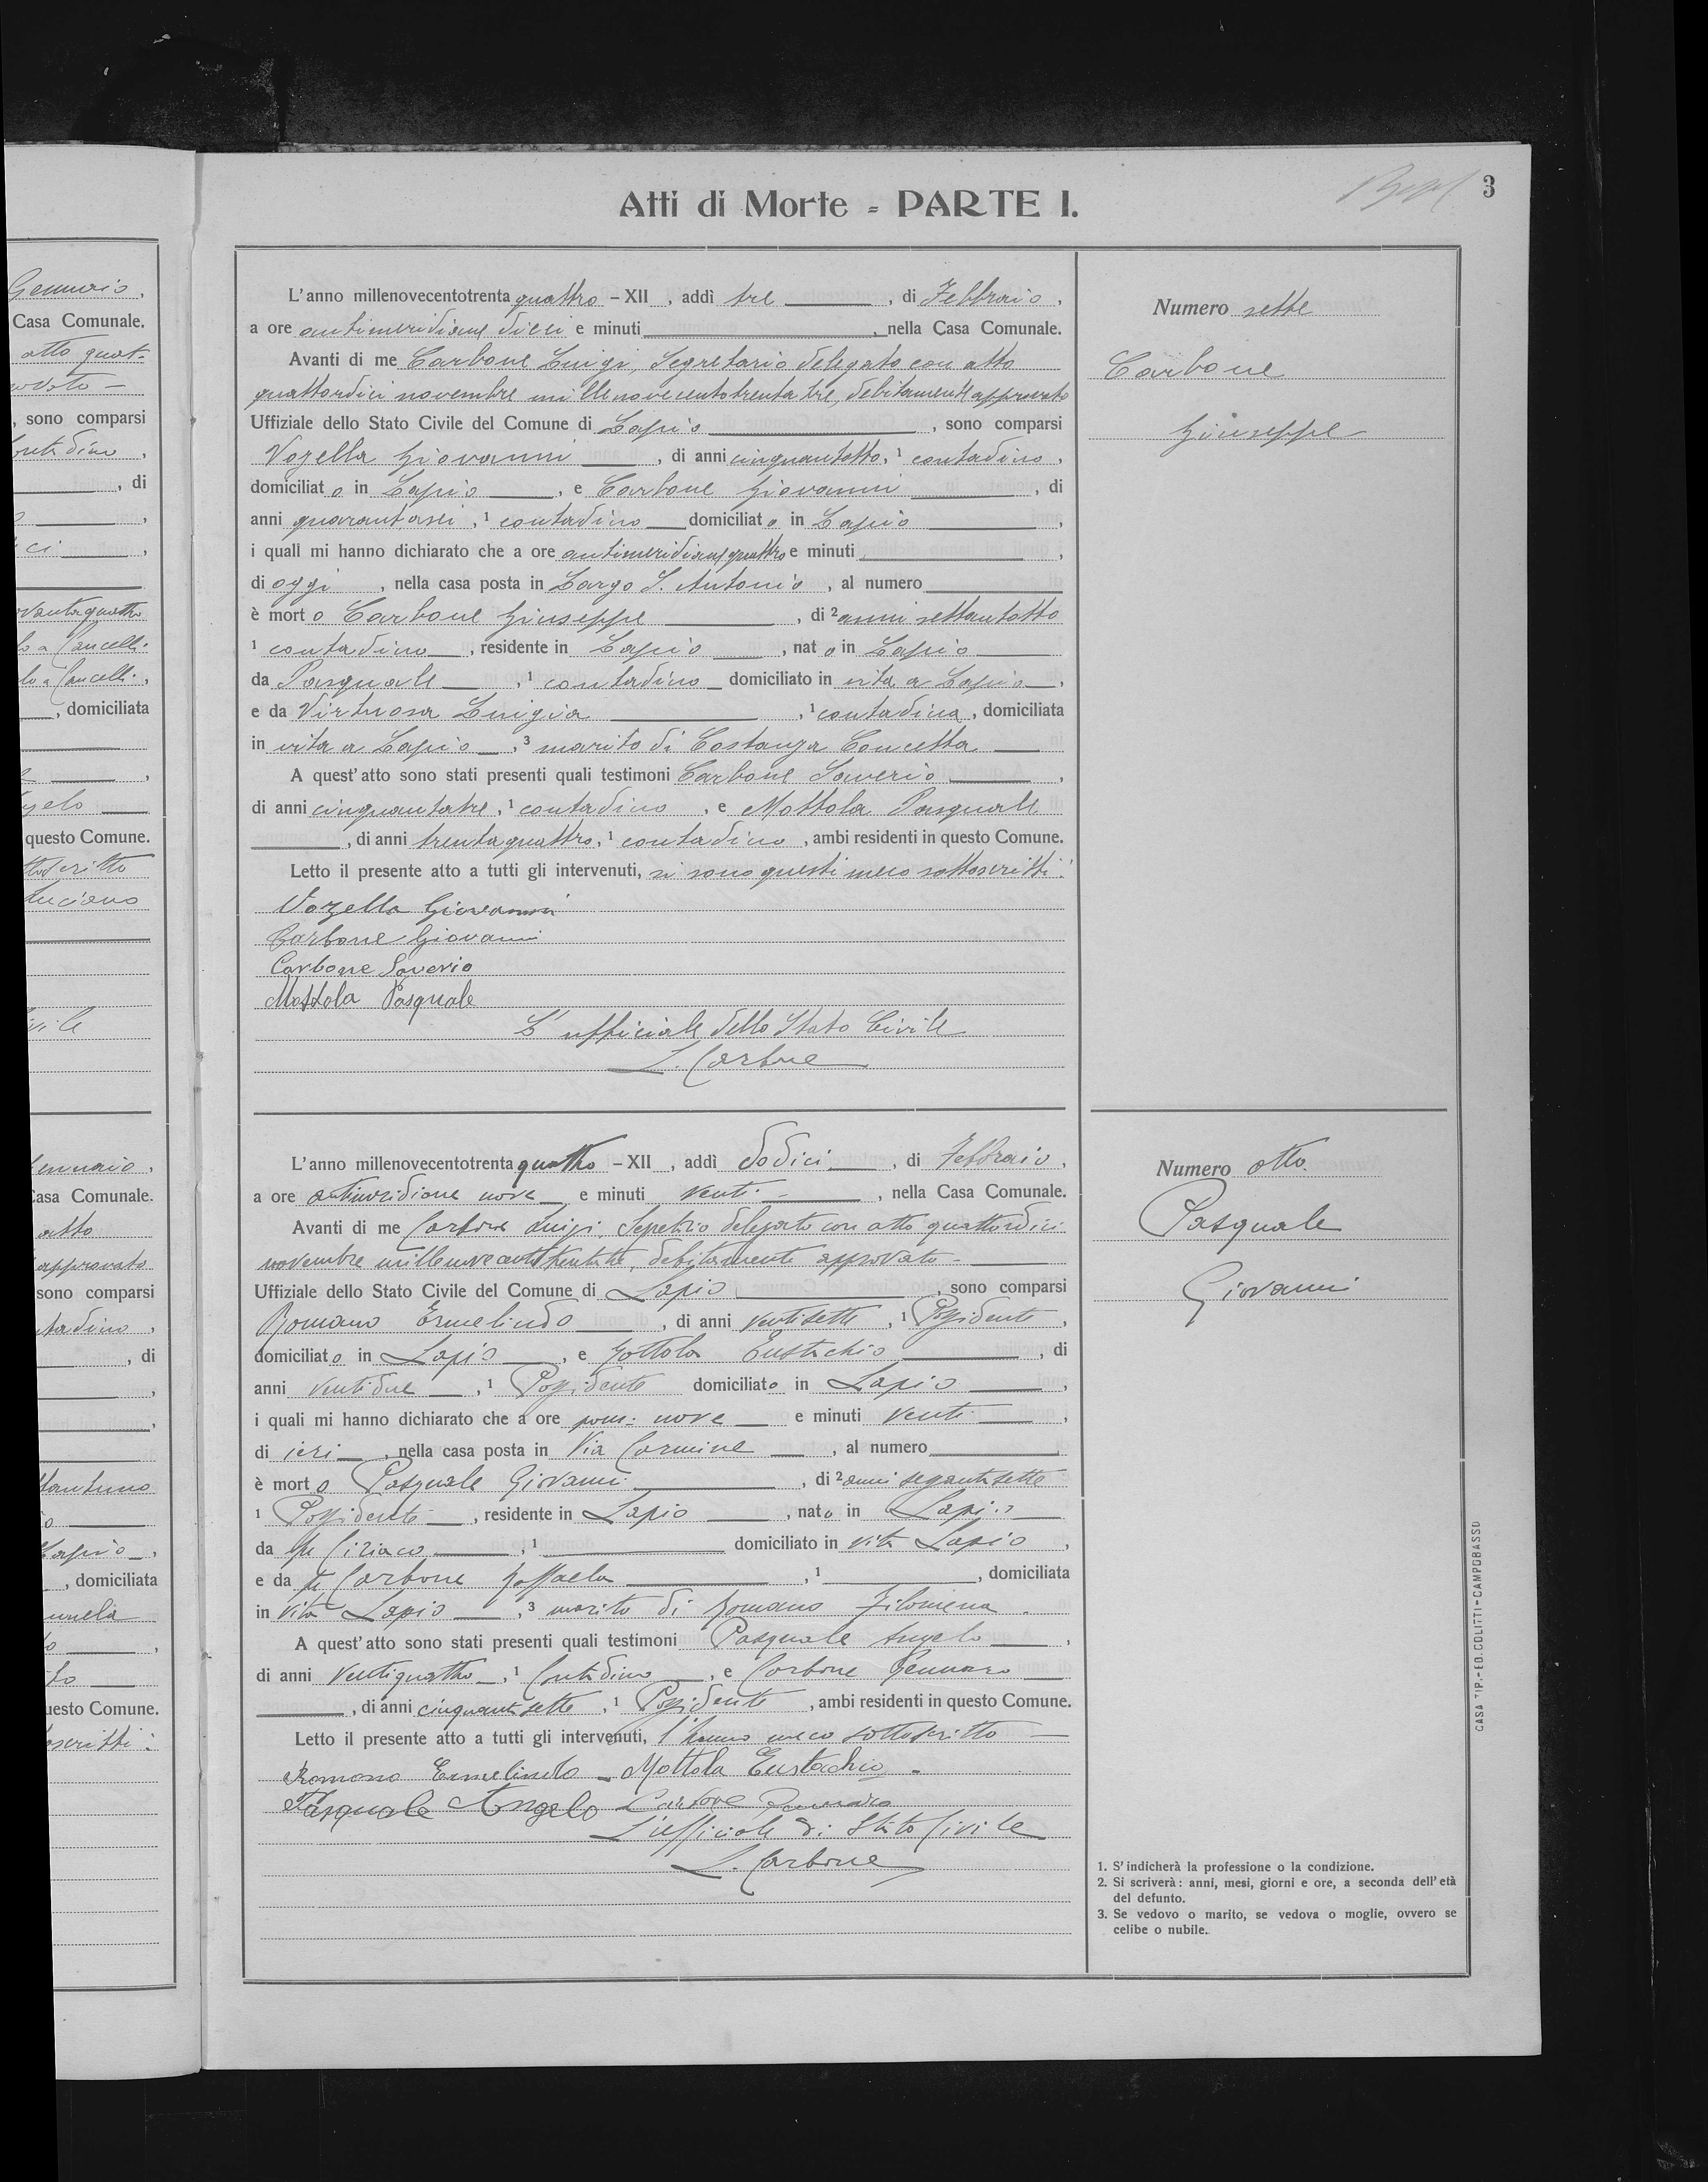 Gennaio,
Casa Comunale.
atto quat-
sono comparsi
, di
ci
vantaquattro
lo a Cancelli.
lo a Cancelli.,
, domiciliata
gelo
questo Comune.
Luciano
vile
ennaio,
Casa Comunale.
atto
approvato
sono comparsi
tadino,
, di
Lapio,
, domiciliata
uesto Comune.
3
Atti di Morte - PARTE I.
L'anno millenovecentotrenta quattro - XII, addì tre, di Febbraio,
a ore antimeridiane dieci e minuti, nella Casa Comunale.
Avanti di me Carbone Luigi, Segretario delegato con atto
quattordici novembre millenovecentotrentatre, debitamente approvato
Uffiziale dello Stato Civile del Comune di Lapio, sono comparsi
Vozella Giovanni, di anni cinquantotto, 1 contadino,
domiciliato in Lapio, e Carbone Giovanni, di
anni quarantasei, 1 contadino domiciliato in Lapio,
i quali mi hanno dichiarato che a ore antimeridiane quattro e minuti,
di oggi, nella casa posta in Largo S. Antonio, al numero
è morto Carbone Giuseppe, di 2 anni settantotto
1 contadino, residente in Lapio, nato in Lapio
da Pasquale, 1 contadino domiciliato in vita a Lapio,
e da Virtuosa Luigia, 1 contadina, domiciliata
in vita a Lapio, 3 marito di Costanza Concetta
A quest'atto sono stati presenti quali testimoni Carbone Saverio,
di anni cinquantatre, 1 contadino, e Mottola Pasquale
, di anni trentaquattro, 1 contadino, ambi residenti in questo Comune.
Letto il presente atto a tutti gli intervenuti, si sono questi meco sottoscritti:
Vozella Giovanni
Carbone Giovanni
Carbone Saverio
Mottola Pasquale
L'ufficiale dello Stato Civile
L. Carbone
Numero sette
Carbone
Giuseppe
L'anno millenovecentotrenta quattro - XII, addì dodici, di Febbraio,
a ore antimeridiane nove e minuti venti -, nella Casa Comunale.
Avanti di me Carbone Luigi, Segretario delegato con atto quattordici
novembre millenovecentotrentatre, debitamente approvato -
Uffiziale dello Stato Civile del Comune di Lapio, sono comparsi
Romano Ermelindo, di anni ventisette, 1 Possidente,
domiciliato in Lapio, e Mottola Eustachio, di
anni ventidue, 1 Possidente domiciliato in Lapio,
i quali mi hanno dichiarato che a ore pom: nove e minuti venti,
di ieri, nella casa posta in Via Carmine, al numero
è morto Pasquale Giovanni, di 2 anni sessantasette
1 Possidente, residente in Lapio, nato in Lapio
da fu Ciriaco, 1 domiciliato in vita Lapio,
e da fu Carbone Raffaela, 1, domiciliata
in vita Lapio, 3 marito di Romano Filomena.
A quest'atto sono stati presenti quali testimoni Pasquale Angelo,
di anni ventiquattro, 1 Contadino, e Carbone Gennaro
, di anni cinquantasette, 1 Possidente, ambi residenti in questo Comune.
Letto il presente atto a tutti gli intervenuti, l'hanno meco sottoscritto -
Romano Ermelindo - Mottola Eustachio -
Pasquale Angelo Carbone Gennaro
L'ufficiale di Stato Civile
L. Carbone
Numero otto.
Pasquale
Giovanni
1. S'indicherà la professione o la condizione.
2. Si scriverà: anni, mesi, giorni e ore, a seconda dell'età
del defunto.
3. Se vedovo o marito, se vedova o moglie, ovvero se
celibe o nubile.
CASA TIP.-ED. COLITTI-CAMPOBASSO